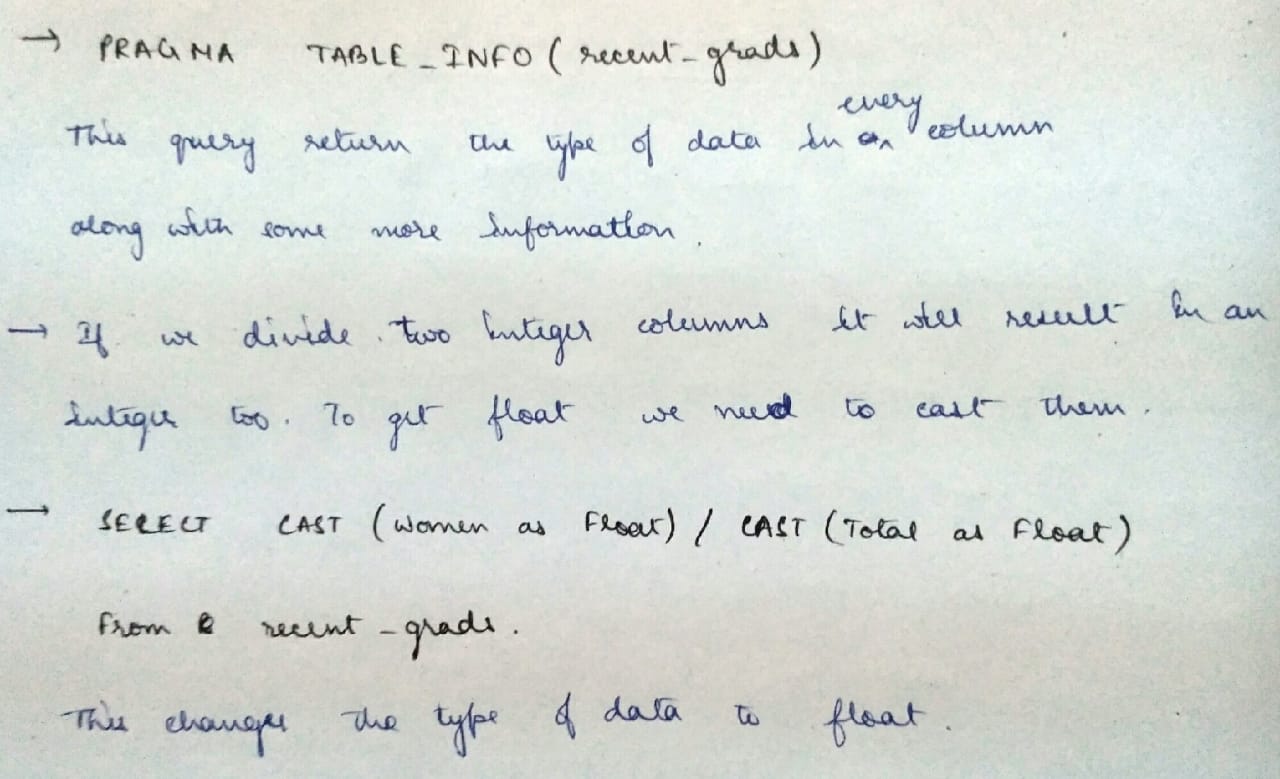 → PRAGMA TABLE_INFO ( recent_grads )
This query return the type of data in every column
along with some more information.
→ If we divide two integer columns it will result in an
integer too. To get float we need to cast them.
→ SELECT CAST (Women as Float) / CAST (Total as Float)
From recent_grads.
This changes the type of data to float.